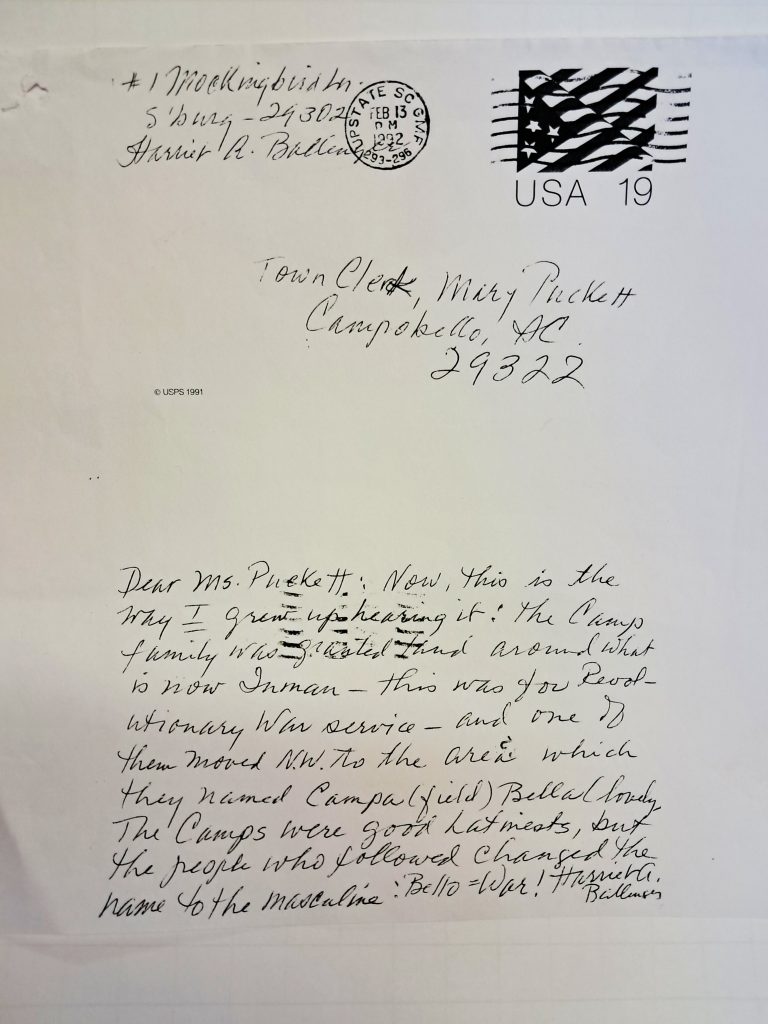 #1 Mockingbird Ln.
S'burg - 29302
Harriet A. Ballenger
UPSTATE SC GMF
FEB 13
PM
1992
293-296
USA 19
Town Clerk, Mary Puckett
Campobello, SC
29322
© USPS 1991
Dear Ms. Puckett: Now, this is the
way I grew up hearing it: The Camp
family was granted land around what
is now Inman - this was for Revol-
utionary War service - and one of
them moved N.W. to the area which
they named Campa (field) Bella (lovely
The Camps were good Latinests, but
the people who followed changed the
name to the masculine: Bello = War! Harriet A.
Ballenger